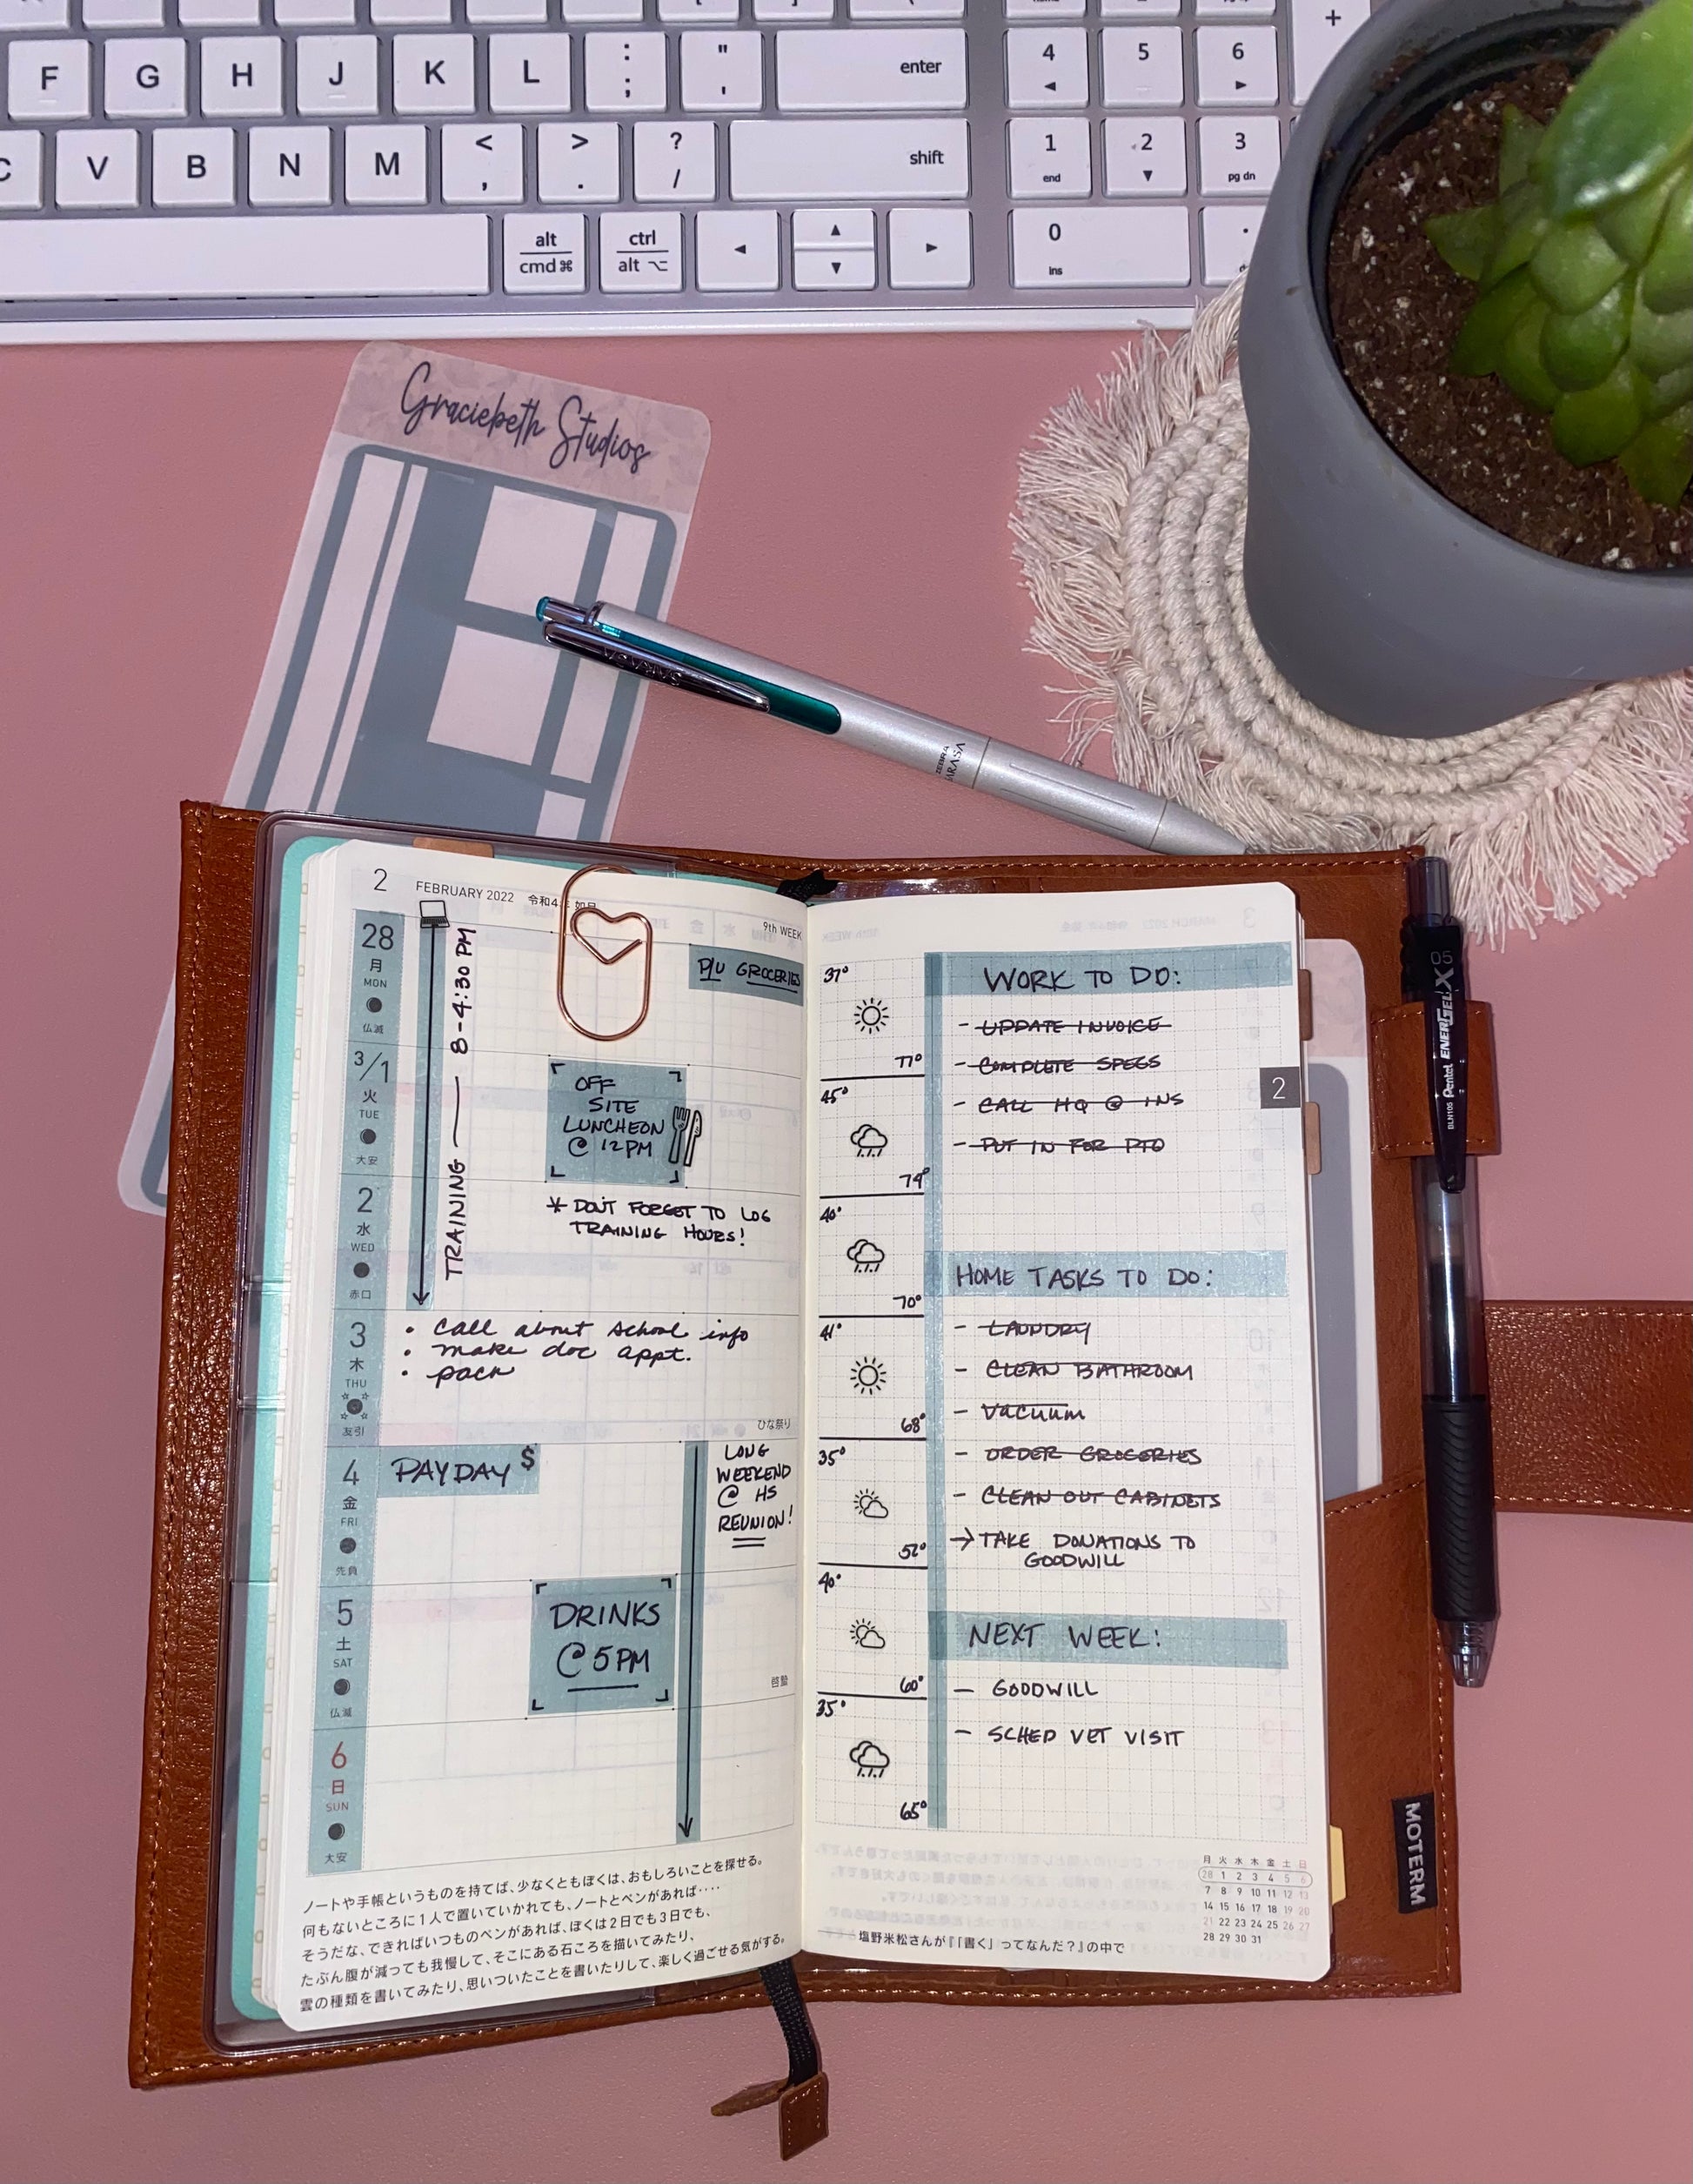 F G H J K L : ; " ' enter 4 5 6 +
C V B N M < , > . ? / shift 1 end 2 3 pg dn
alt cmd ⌘ ctrl alt ⌥ 0 ins .
Graciebeth Studios
ZEBRA
SARASA
2 FEBRUARY 2022 令和4年 如月
9th WEEK
28
月
MON
仏滅
P/U GROCERIES
TRAINING — 8-4:30 PM
3/1
火
TUE
大安
OFF
SITE
LUNCHEON
@ 12PM
2
水
WED
赤口
* DON'T FORGET TO LOG
TRAINING HOURS!
3
木
THU
友引
• Call about school info
• make doc appt.
• pack
ひな祭り
4
金
FRI
先負
PAYDAY $
LONG
WEEKEND
@ HS
REUNION!
5
土
SAT
仏滅
DRINKS
@ 5PM
啓蟄
6
日
SUN
大安
ノートや手帳というものを持てば、少なくともぼくは、おもしろいことを探せる。
何もないところに1人で置いていかれても、ノートとペンがあれば‥‥
そうだな、できればいつものペンがあれば、ぼくは2日でも3日でも、
たぶん腹が減っても我慢して、そこにある石ころを描いてみたり、
雲の種類を書いてみたり、思いついたことを書いたりして、楽しく過ごせる気がする。
37°
77°
45°
74°
40°
70°
41°
68°
35°
52°
40°
60°
35°
65°
WORK TO DO:
- UPDATE INVOICE
- COMPLETE SPECS
- CALL HQ @ INS
- PUT IN FOR PTO
2
HOME TASKS TO DO:
- LAUNDRY
- CLEAN BATHROOM
- Vacuum
- ORDER GROCERIES
- CLEAN OUT CABINETS
→ TAKE DONATIONS TO
GOODWILL
NEXT WEEK:
- GOODWILL
- SCHED VET VISIT
月 火 水 木 金 土 日
28 1 2 3 4 5 6
7 8 9 10 11 12 13
14 15 16 17 18 19 20
21 22 23 24 25 26 27
28 29 30 31
──塩野米松さんが『「書く」ってなんだ？』の中で
BLN105 Pentel ENERGEL X 05
MOTERM